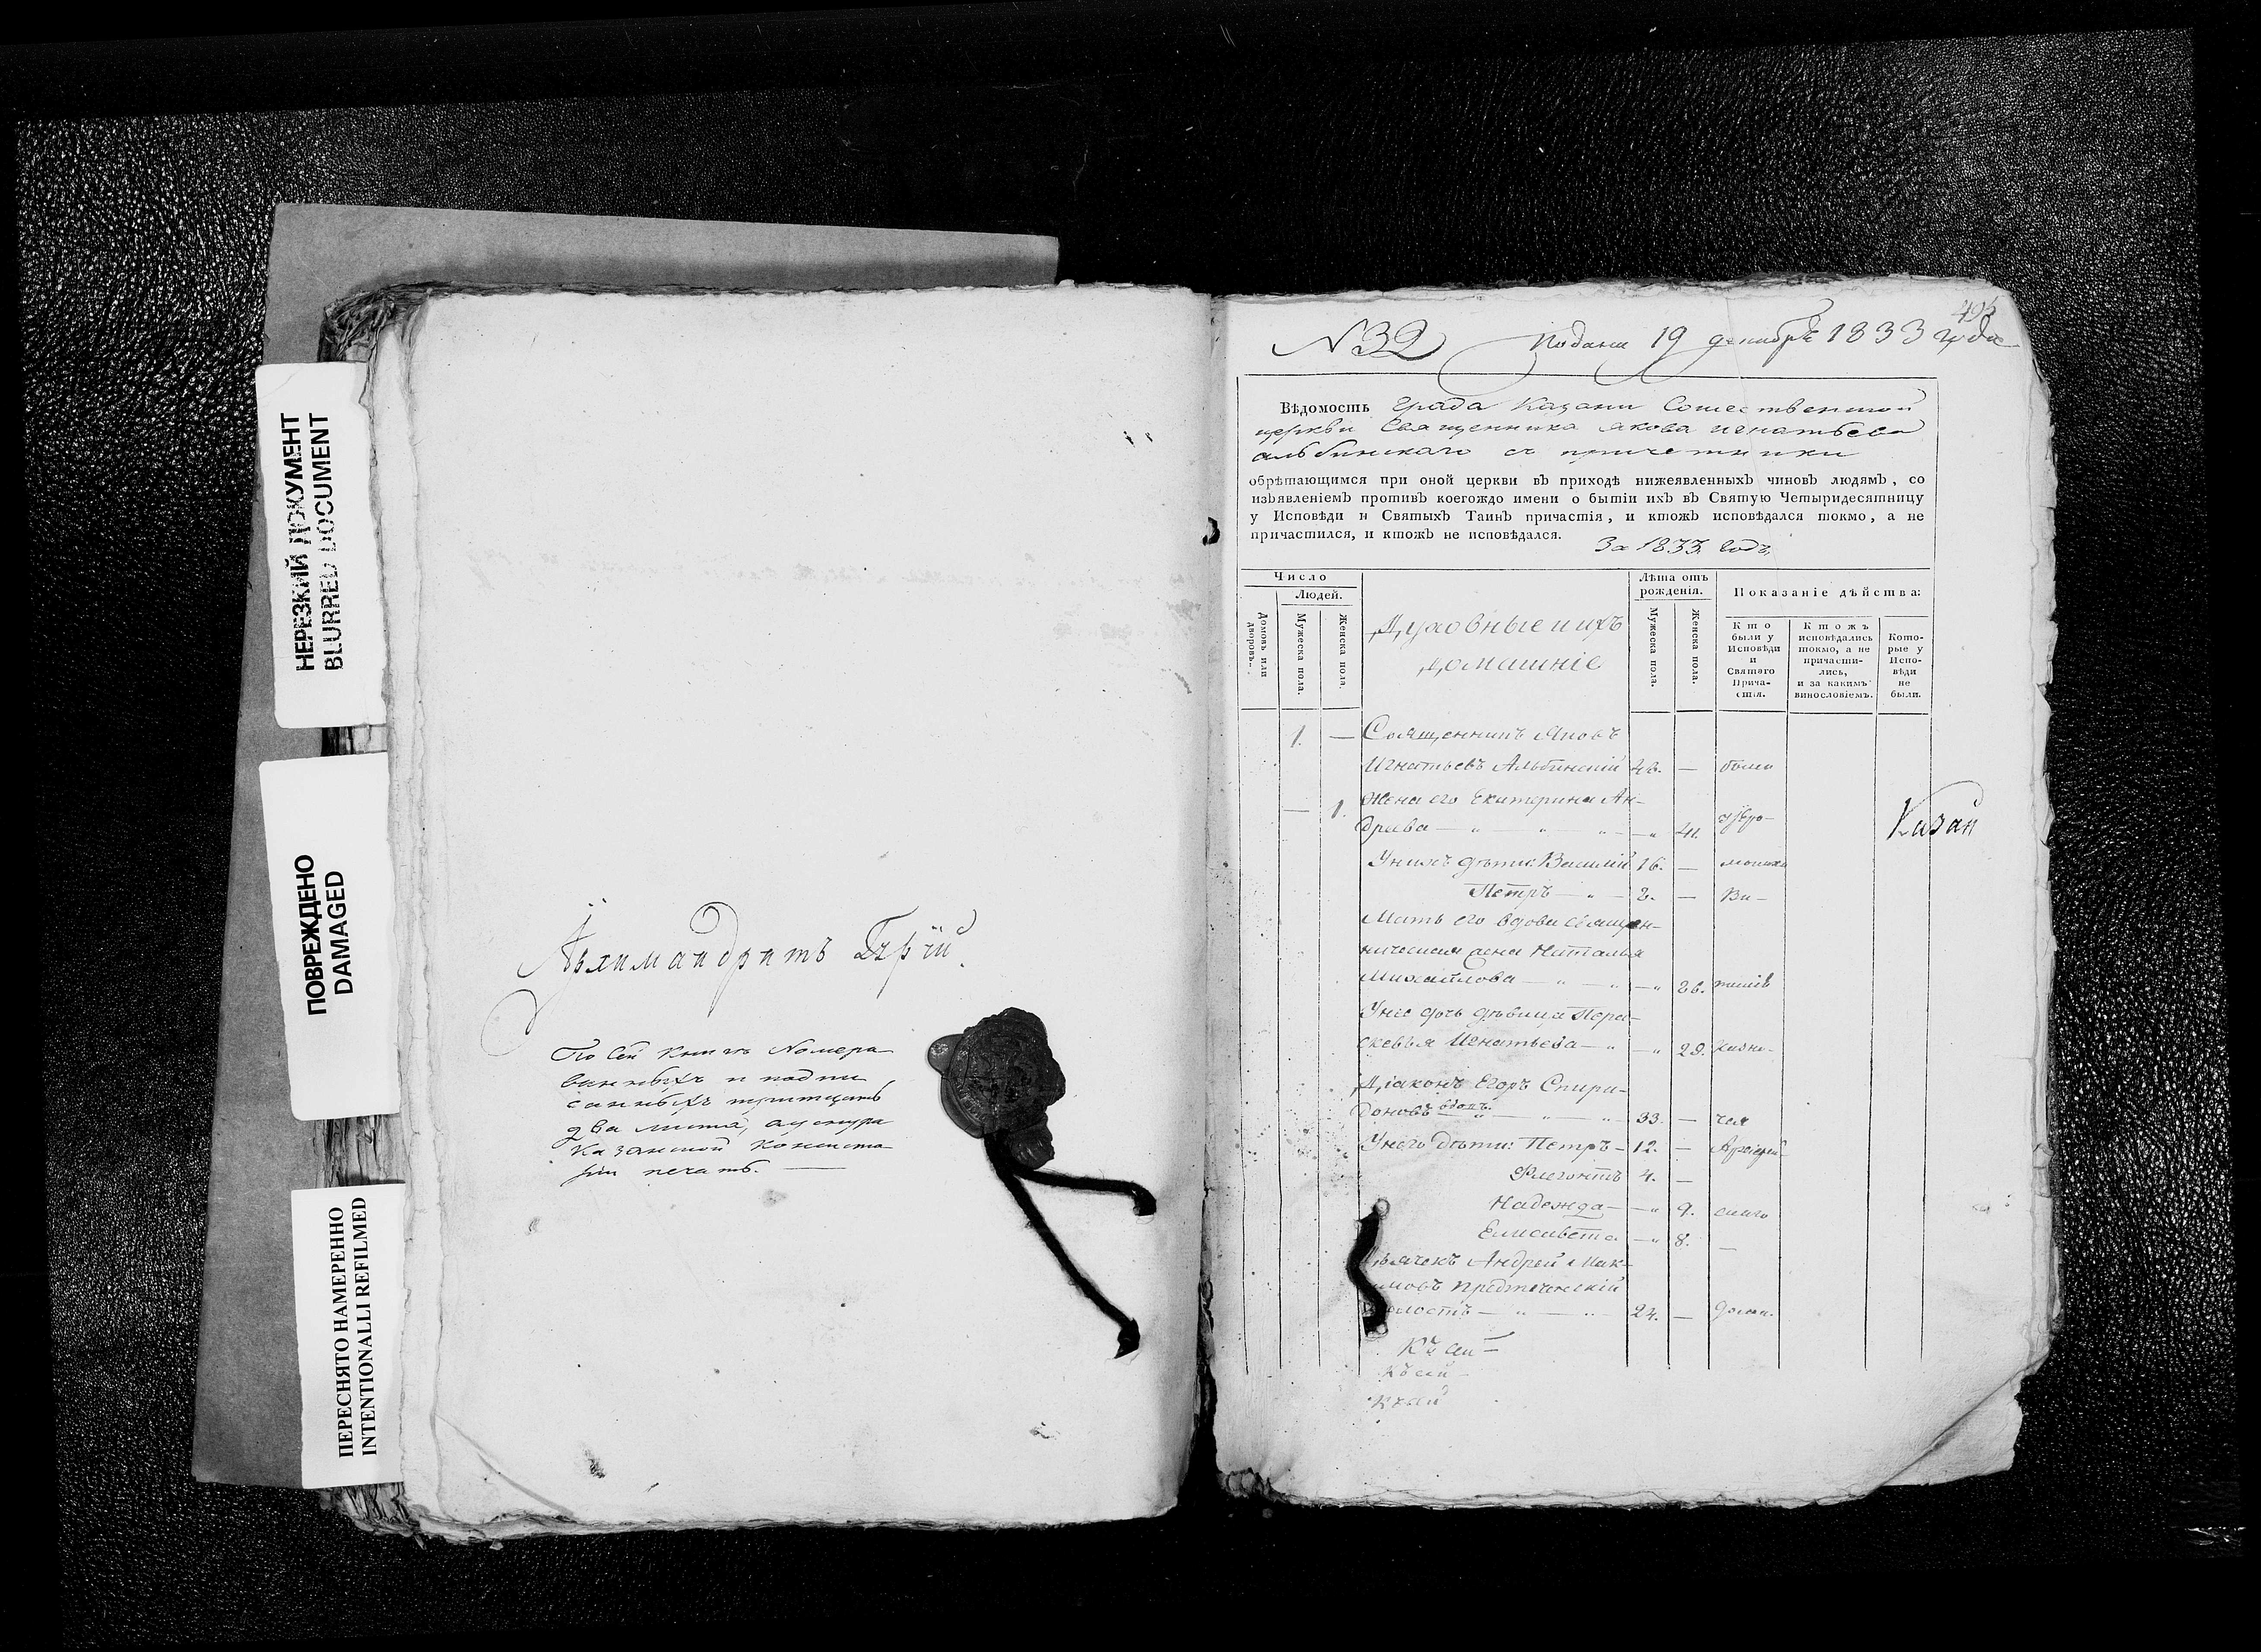 НЕРЕЗКИЙ ДОКУМЕНТ
BLURRED DOCUMENT
ПОВРЕЖДЕНО
DAMAGED
ПЕРЕСНЯТО НАМЕРЕННО
INTENTIONALLI REFILMED
Архимандритъ Гурій.
По сей книгѣ номеро
ванныхъ и подпи
санныхъ тритцать
два листа, а у шнура
Казанской Консисто
ріи печать.
495
N 32 Подана 19 декабря 1833 года
Вѣдомость града Казани Сошественской
церкви Священника Якова Игнатьева
Альбинскаго съ причетники
обрѣтающимся при оной церкви въ приходѣ нижеявленныхъ чиновъ людямъ, со
изъявленіемъ противъ коегождо имени о бытіи ихъ въ Святую Четыридесятницу
у Исповѣди и Святыхъ Таинъ причастія, и ктожъ исповѣдался токмо, а не
причастился, и ктожъ не исповѣдался.
За 1833 годъ
Число
Людей.
Домовъ или дворовъ.
Мужеска пола.
Женска пола.
Духовные и ихъ
домашніе
Лѣта отъ рожденія.
Мужеска пола.
Женска пола.
Показаніе дѣйства:
Кто были у Исповѣди и Святаго Прича- стія.
Ктожъ исповѣдались токмо, а не причасти- лись, и за какимъ винословіемъ.
Кото- рые у Испо- вѣди не были.
1. — Священникъ Яковъ
Игнатьевъ Альбинскій 46. — были
— 1. Жена его Екатерина Ан-
дреева — " — " — " 41.
Казан
У нихъ дѣти: Василій 16. —
Петръ — " — —
Мать его вдова священ-
ническая жена Наталья
Михайлова — " — "
У нее дочь дѣвица Пера-
скевья Игнатьева — " — " 29.
Діаконъ Егоръ Спири-
доновъ вдовъ — " — " 33. —
У него дѣти: Петръ — 12. — Архіерей-
Флегонтъ 4. —
Надежда — — " 9.
Елисавета — " 8. —
Дьячекъ Андрей Мак-
имовъ Предтеченскій
холостъ — " — " 24. —
Къ сей —
Къ сей —
Къ сей